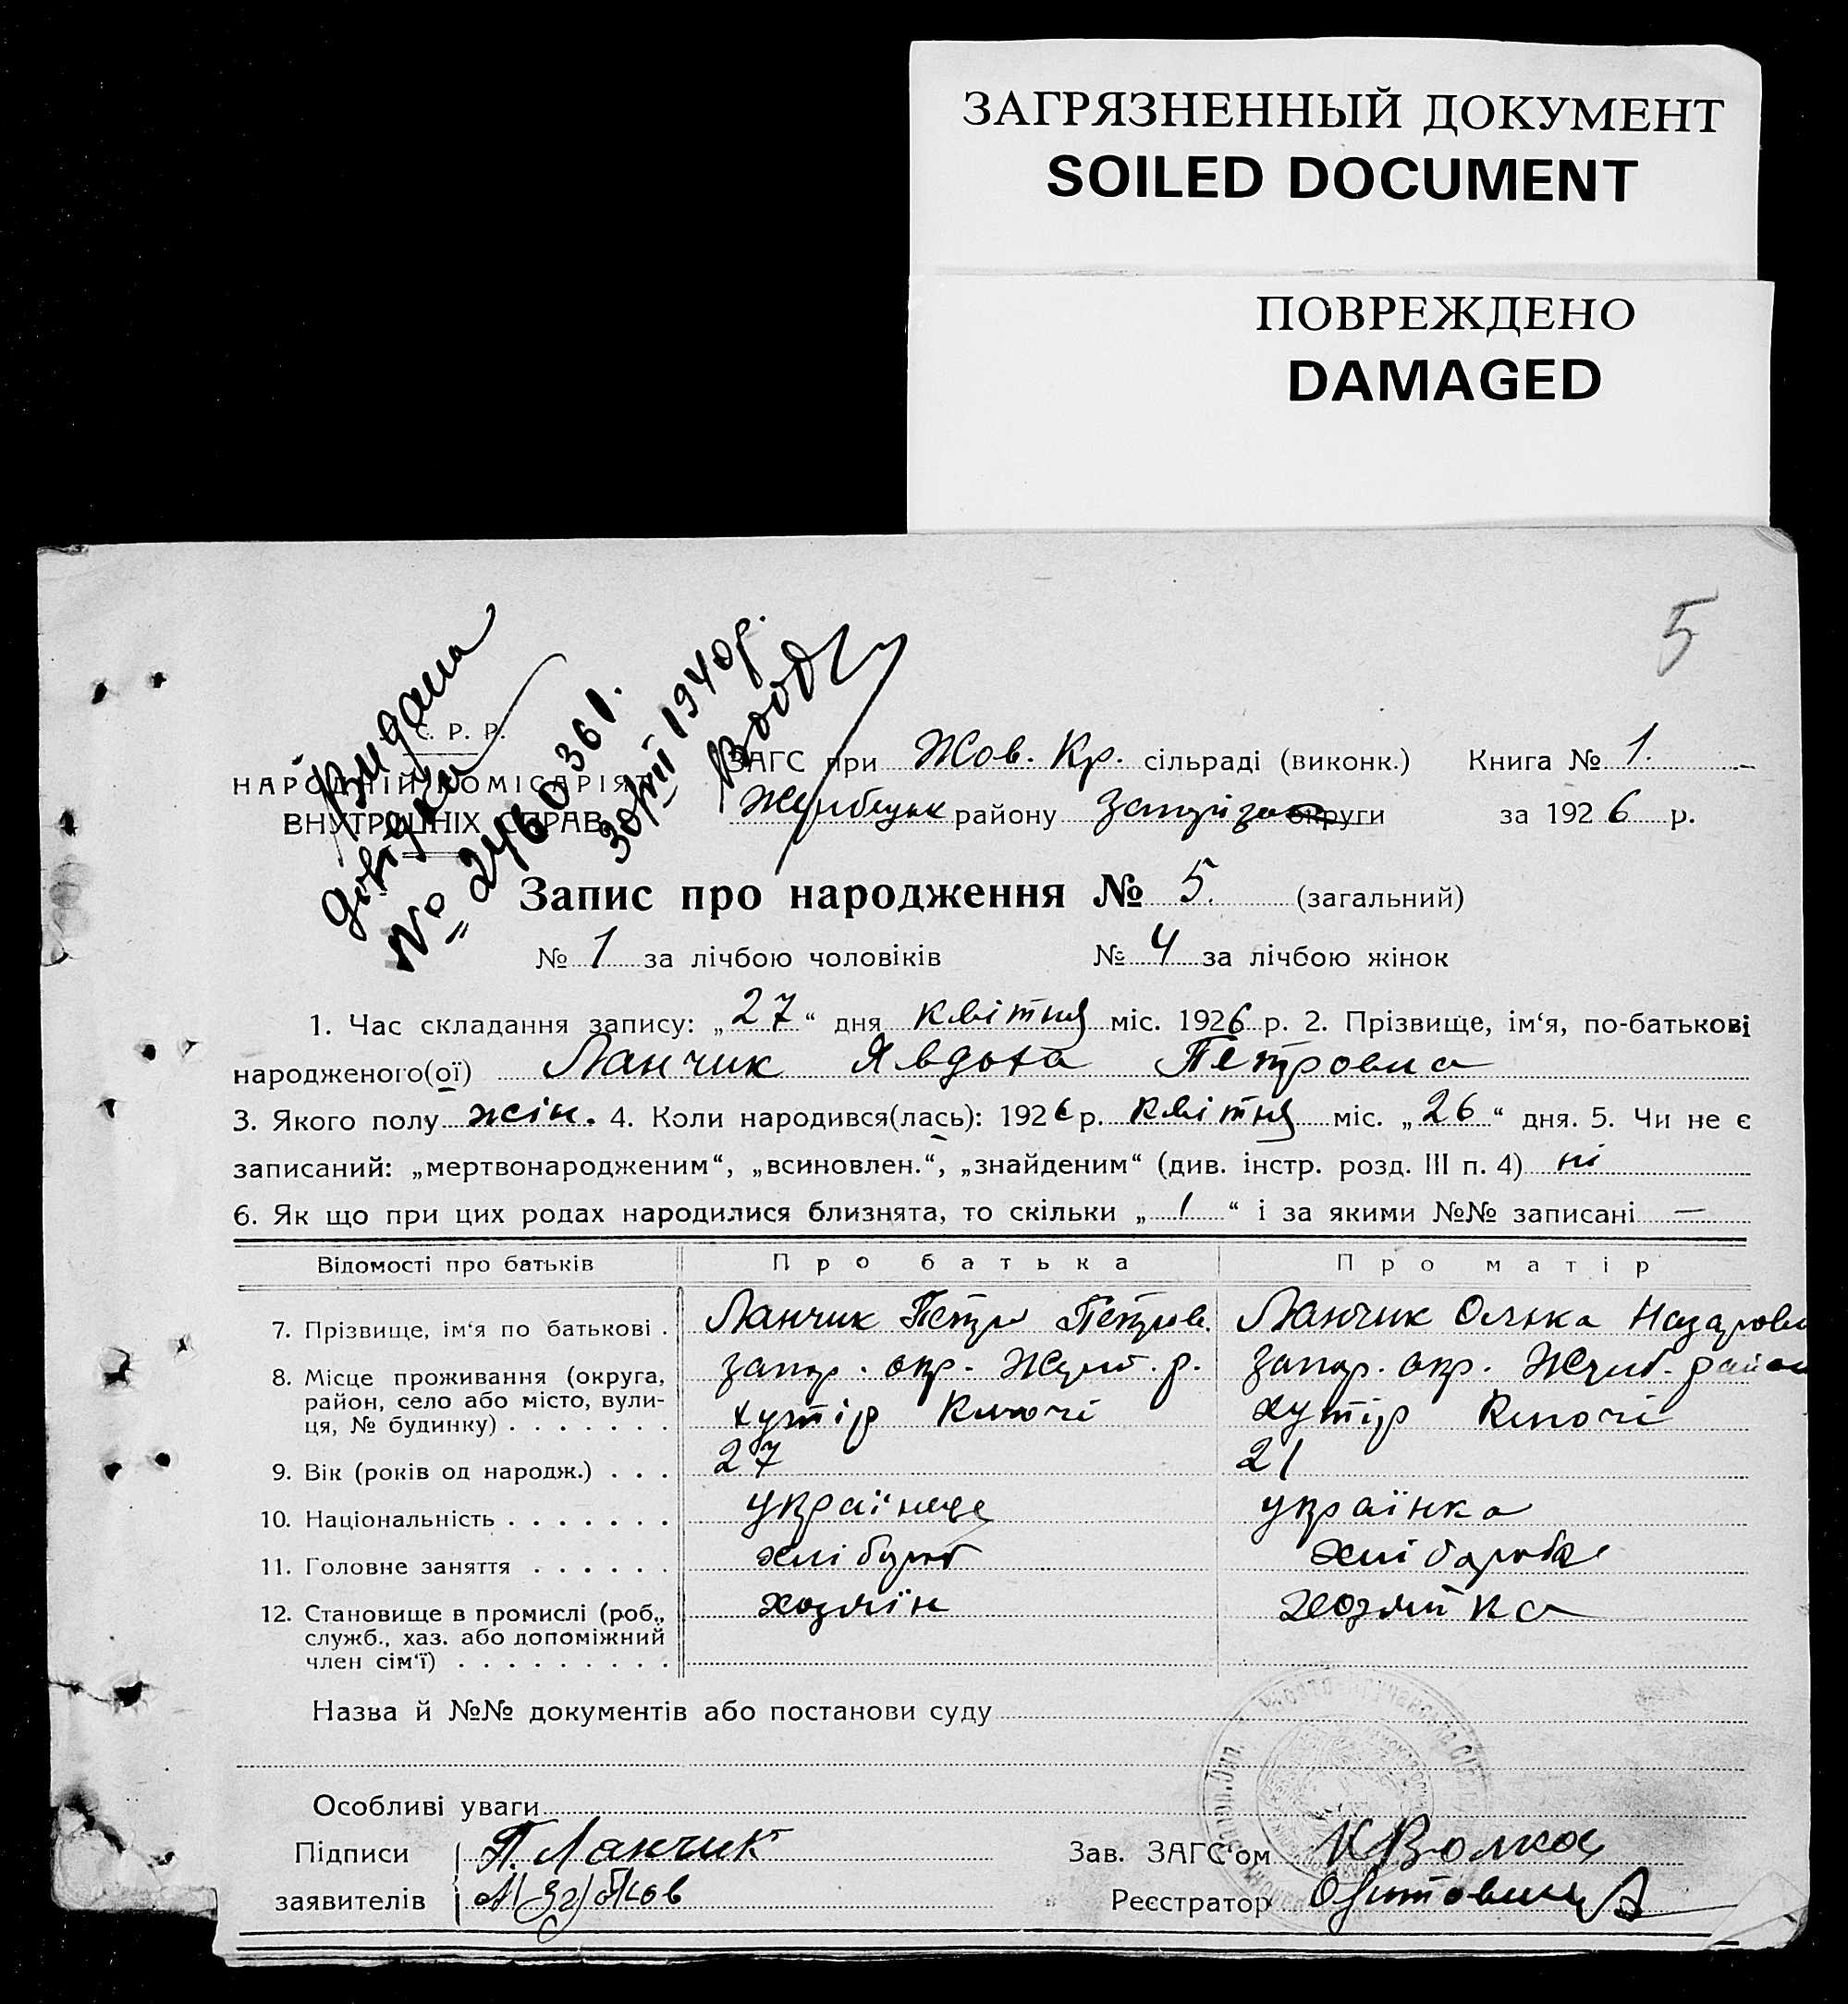 ЗАГРЯЗНЕННЫЙ ДОКУМЕНТ
SOILED DOCUMENT
ПОВРЕЖДЕНО
DAMAGED
5
Видана
довідка
№ 2460361.
30/VII 1940р.
С. Р. Р.
НАРОДНІЙ КОМІСАРІЯТ
ВНУТРІШНІХ СПРАВ
ЗАГС при Жов. Кр. сільраді (виконк.) Книга № 1.
району округи за 1926 р.
Запис про народження № 5. (загальний)
№ 1 за лічбою чоловіків № 4 за лічбою жінок
1. Час складання запису: „27“ дня квітня міс. 1926 р. 2. Прізвище, ім‘я, по-батькові
народженого(ої) Ланчик Явдоха Петровна
3. Якого полу жін. 4. Коли народився(лась): 1926 р. квітня міс. „26“ дня. 5. Чи не є
записаний: „мертвонародженим“, „всиновлен.“, „знайденим“ (див. інстр. розд. III п. 4) ні
6. Як що при цих родах народилися близнята, то скільки „1“ і за якими №№ записані —
Відомості про батьків Про батька Про матір
7. Прізвище, ім‘я по батькові . Ланчик Петро Петров. Ланчик Олька Назаровн
8. Місце проживання (округа, запор. окр. Жереб. р. запор. окр. Жереб. район
район, село або місто, вули- хутір Ключі хутір Ключі
ця, № будинку) . . . . . . .
9. Вік (років од народж.) . . . 27 21
10. Національність . . . . . . . українець українка
11. Головне заняття . . . . . . хлібороб хліборобка
12. Становище в промислі (роб., хозяїн хозяйка
служб., хаз. або допоміжний
член сім‘ї) . . . . . . . . .
Назва й №№ документів або постанови суду
Особливі уваги
Підписи П. Ланчик Зав. ЗАГС‘ом
заявителів Реєстратор